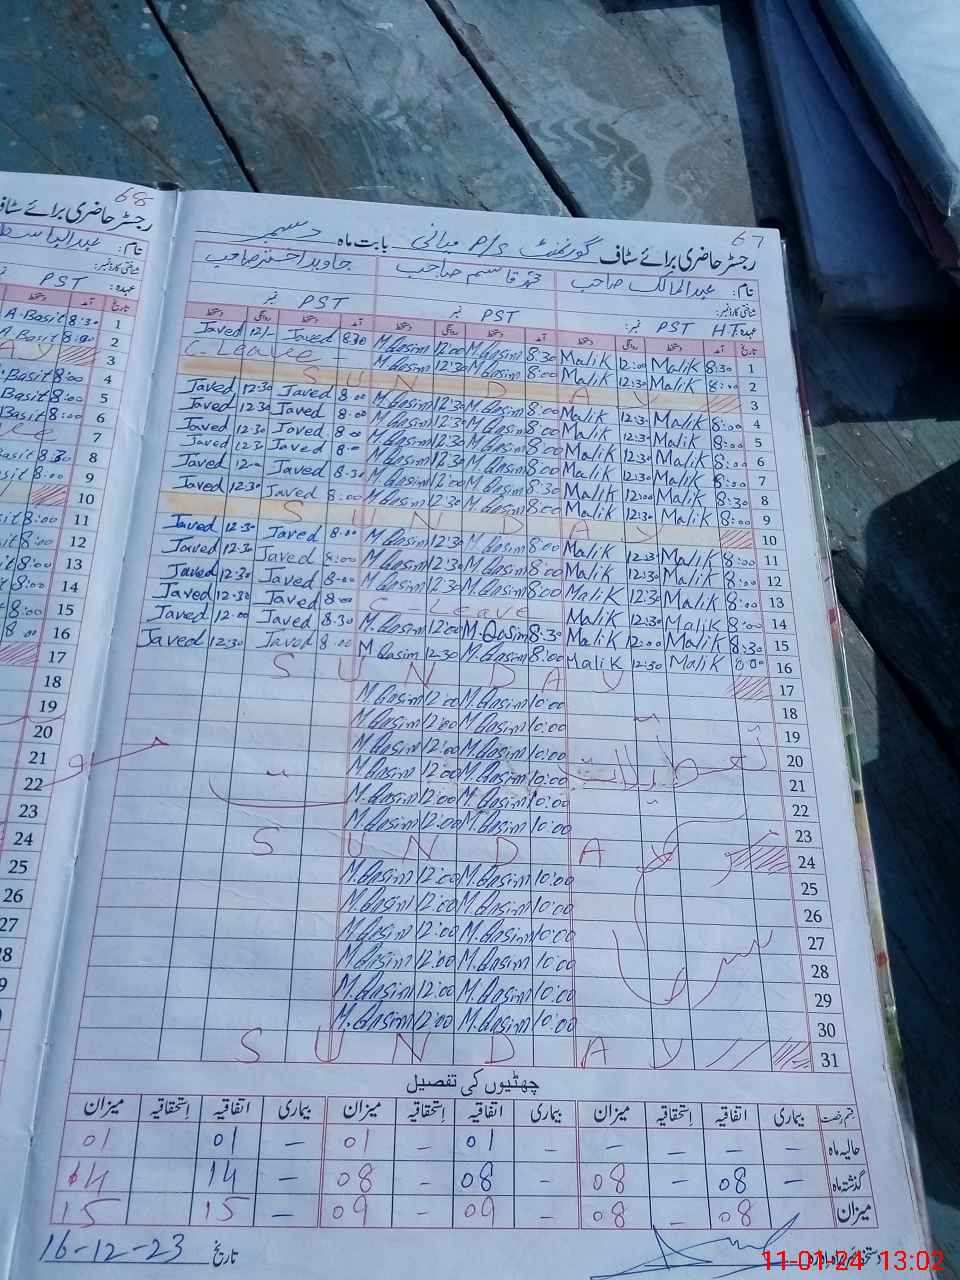 67
رجسٹر حاضری برائے سٹاف گورنمنٹ P/S میانی بابت ماہ دسمبر
نام: عبدالمالک صاحب محمد قاسم صاحب جاوید اختر صاحب
شناختی کارڈ نمبر:
عہدہ: PST H.T نمبر: PST نمبر PST نمبر
تاریخ آمد دستخط روانگی دستخط آمد دستخط روانگی دستخط آمد دستخط روانگی دستخط
1 8:30 Malik 12:00 Malik 8:30 M.Qasim 12:00 M.Qasim 8:30 Javed 12/- Javed
2 8:00 Malik 12:30 Malik 8:00 M.Qasim 12:30 M.Qasim C-Leave
3 SUNDAY
4 8:00 Malik 12:30 Malik 8:00 M.Qasim 12:30 M.Qasim 8:00 Javed 12:30 Javed
5 8:00 Malik 12:30 Malik 8:00 M.Qasim 12:30 M.Qasim 8:00 Javed 12:30 Javed
6 8:00 Malik 12:30 Malik 8:00 M.Qasim 12:30 M.Qasim 8:00 Javed 12:30 Javed
7 8:00 Malik 12:30 Malik 8:00 M.Qasim 12:30 M.Qasim 8:00 Javed 12:30 Javed
8 8:30 Malik 12:00 Malik 8:30 M.Qasim 12:00 M.Qasim 8:30 Javed 12:00 Javed
9 8:00 Malik 12:30 Malik 8:00 M.Qasim 12:30 M.Qasim 8:00 Javed 12:30 Javed
10 SUNDAY
11 8:00 Malik 12:30 Malik 8:00 M.Qasim 12:30 M.Qasim 8:00 Javed 12:30 Javed
12 8:00 Malik 12:30 Malik 8:00 M.Qasim 12:30 M.Qasim 8:00 Javed 12:30 Javed
13 8:00 Malik 12:30 Malik 8:00 M.Qasim 12:30 M.Qasim 8:00 Javed 12:30 Javed
14 8:00 Malik 12:30 Malik C-Leave 8:00 Javed 12:30 Javed
15 8:30 Malik 12:00 Malik 8:30 M.Qasim 12:00 M.Qasim 8:30 Javed 12:00 Javed
16 8:00 Malik 12:30 Malik 8:00 M.Qasim 12:30 M.Qasim 8:00 Javed 12:30 Javed
17 SUNDAY
18 10:00 M.Qasim 12:00 M.Qasim
19 10:00 M.Qasim 12:00 M.Qasim
20 تعطیلات 10:00 M.Qasim 12:00 M.Qasim
21 10:00 M.Qasim 12:00 M.Qasim
22 10:00 M.Qasim 12:00 M.Qasim
23 10:00 M.Qasim 12:00 M.Qasim
24 SUNDAY
25 10:00 M.Qasim 12:00 M.Qasim
26 10:00 M.Qasim 12:00 M.Qasim
27 10:00 M.Qasim 12:00 M.Qasim
28 10:00 M.Qasim 12:00 M.Qasim
29 10:00 M.Qasim 12:00 M.Qasim
30 10:00 M.Qasim 12:00 M.Qasim
31 SUNDAY
چھٹیوں کی تفصیل
قسم رخصت بیماری اتفاقیہ استحقاقیہ میزان بیماری اتفاقیہ استحقاقیہ میزان بیماری اتفاقیہ استحقاقیہ میزان
حالیہ ماہ – – – – – 01 – 01 – 01 01
گذشتہ ماہ – 08 – 08 – 08 – 08 – 14 14
میزان 08 – 08 – 09 – 09 – 15 15
تاریخ 16-12-23
68
رجسٹر حاضری برائے سٹاف
نام: عبدالباسط
شناختی کارڈ نمبر:
عہدہ: PST
تاریخ آمد دستخط
1 8:30 A.Basit
2 8:00 A.Basit
3 AY
4 8:00 A.Basit
5 8:00 Basit
6 8:00 Basit
7
8 8:30 Basit
9 8:00 Basit
10
11 8:00
12 8:00
13 8:00
14 8:00
15 8:00
16 8:00
17
18
19
20
21
22
23
24
25
26
27
28
11-01-24 13:02